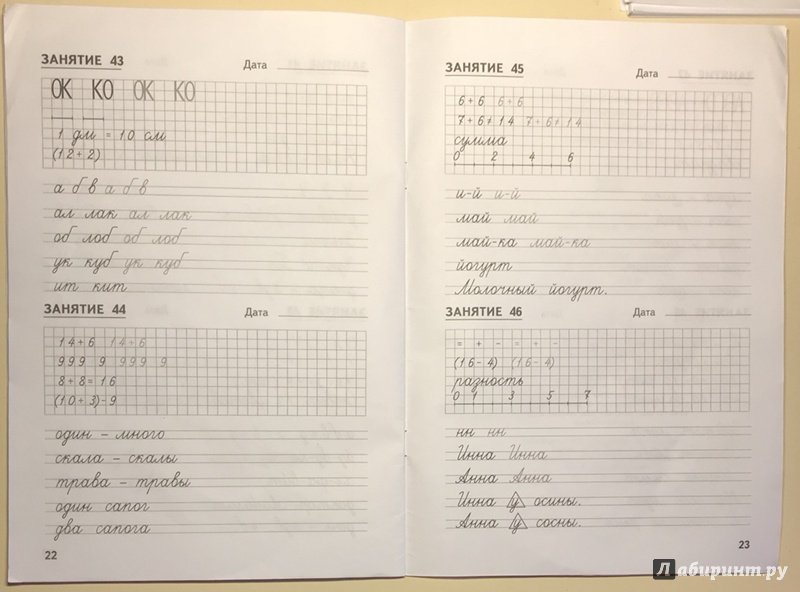 ЗАНЯТИЕ 43 Дата
ОК КО ОК КО
1 дм = 10 см
(12 + 2)
а б в а б в
ал лак ал лак
об лоб об лоб
ук куб ук куб
ит кит
ЗАНЯТИЕ 44 Дата
14 + 6 14 + 6
999 9 999 9
8 + 8 = 16
(10 + 3) - 9
один – много
скала – скалы
трава – травы
один сапог
два сапога
22
ЗАНЯТИЕ 45 Дата
6 + 6 6 + 6
7 + 6 + 14 7 + 6 + 14
сумма
0 2 4 6
и-й и-й
май май
май-ка май-ка
йогурт
Молочный йогурт.
ЗАНЯТИЕ 46 Дата
= + - = + -
(16 - 4) (16 - 4)
разность
0 1 3 5 7
нн нн
Инна Инна
Анна Анна
Инна у осины.
Анна у сосны.
23
Лабиринт.ру